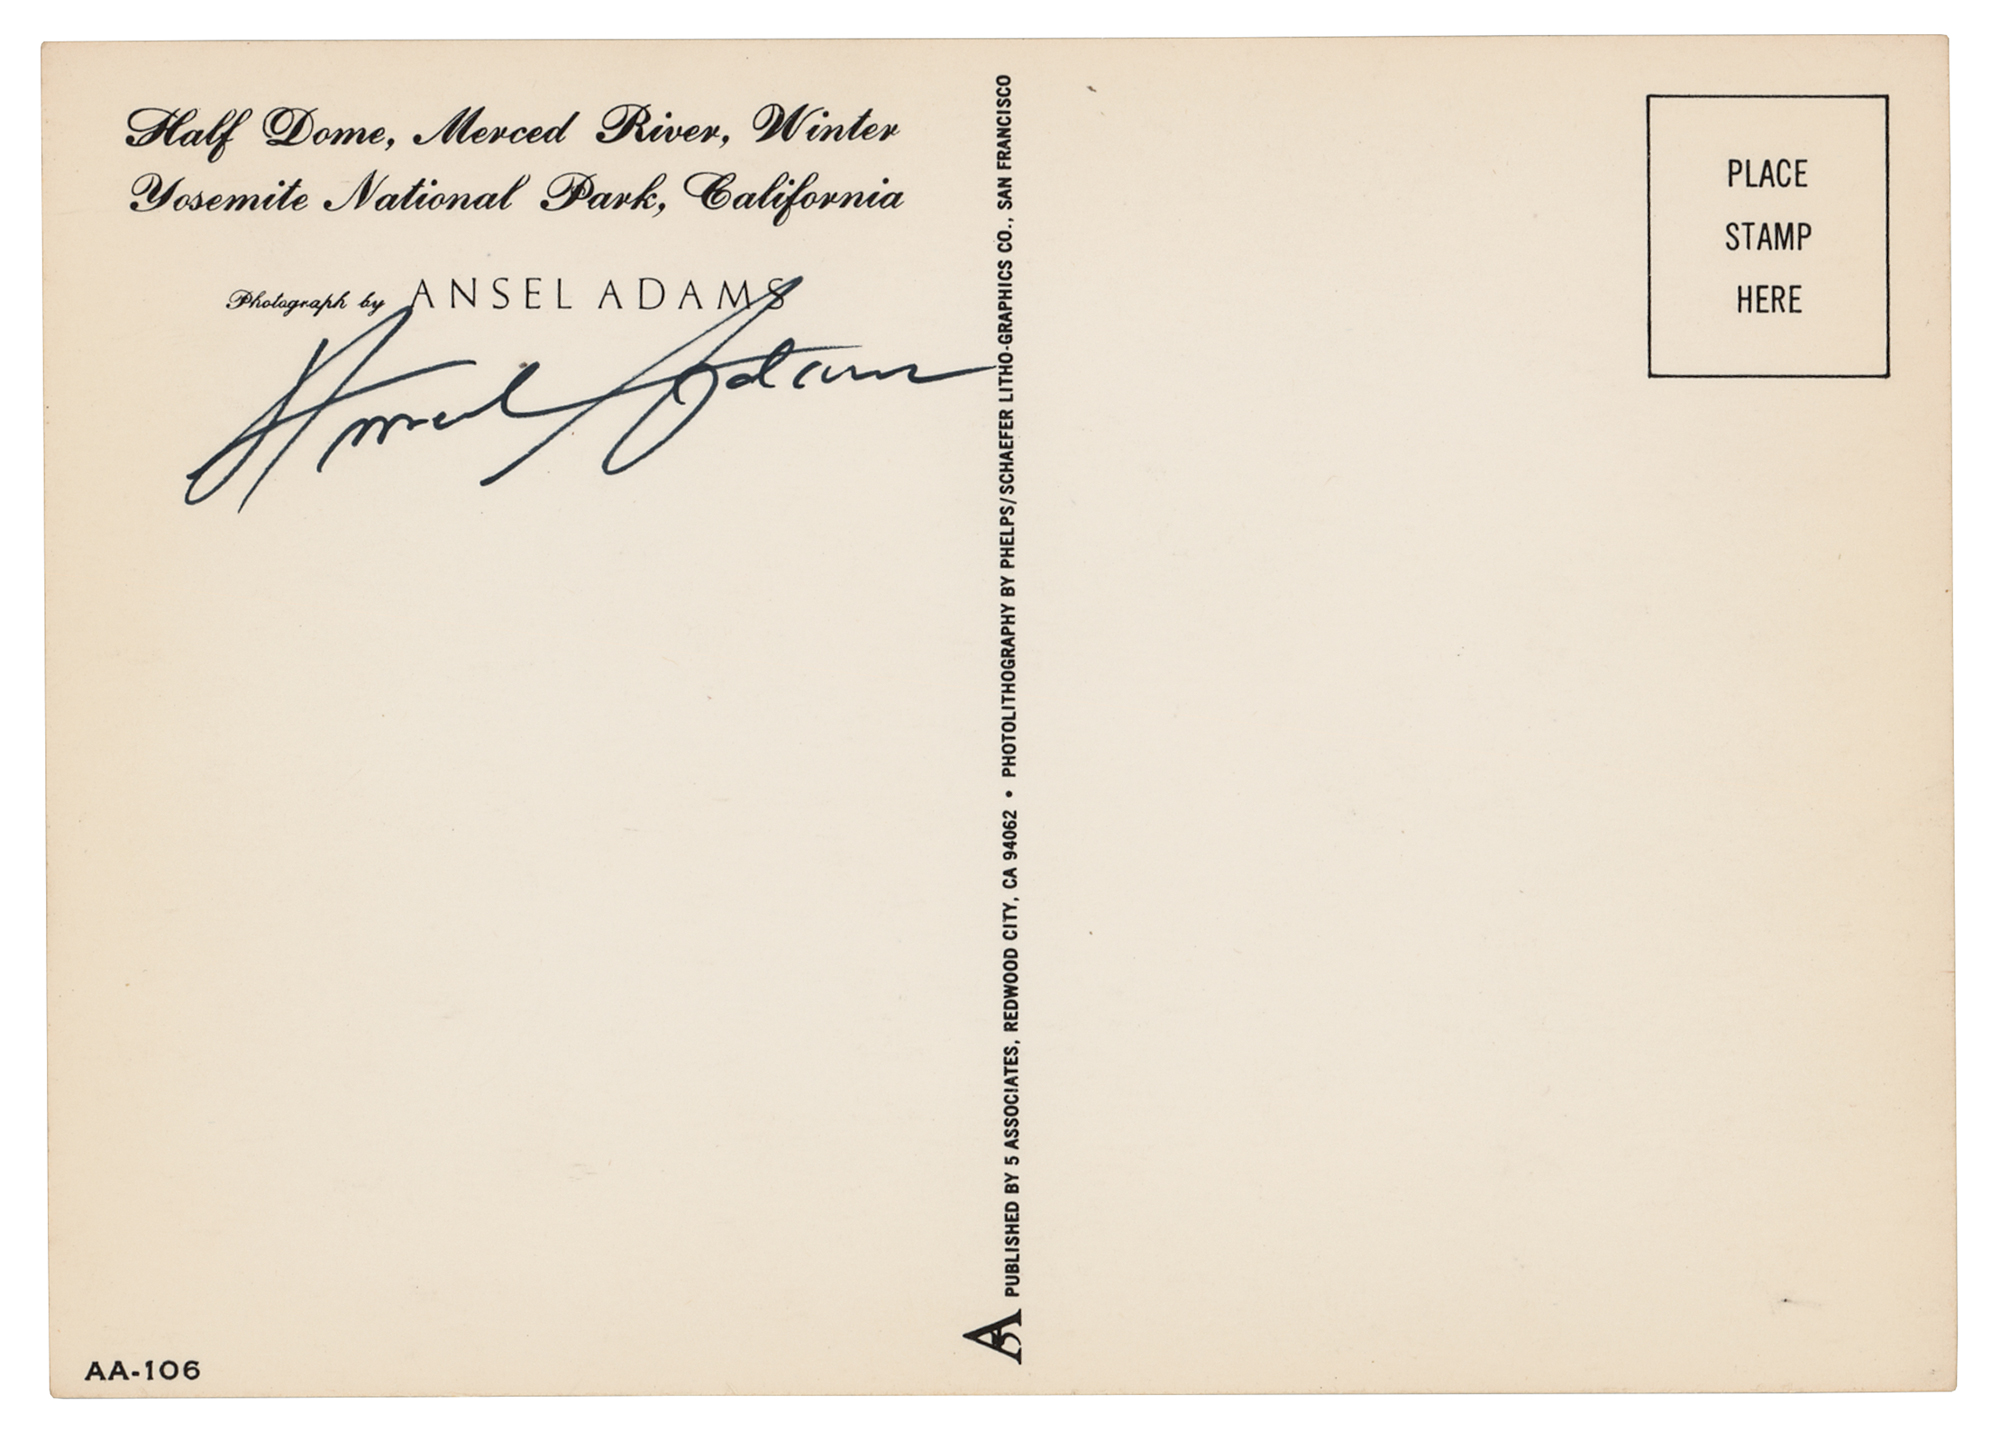 Half Dome, Merced River, Winter
Yosemite National Park, California
Photograph by ANSEL ADAMS
Ansel Adams
PUBLISHED BY 5 ASSOCIATES, REDWOOD CITY, CA 94062 • PHOTOLITHOGRAPHY BY PHELPS/SCHAEFER LITHO-GRAPHICS CO., SAN FRANCISCO
PLACE
STAMP
HERE
A5
AA-106